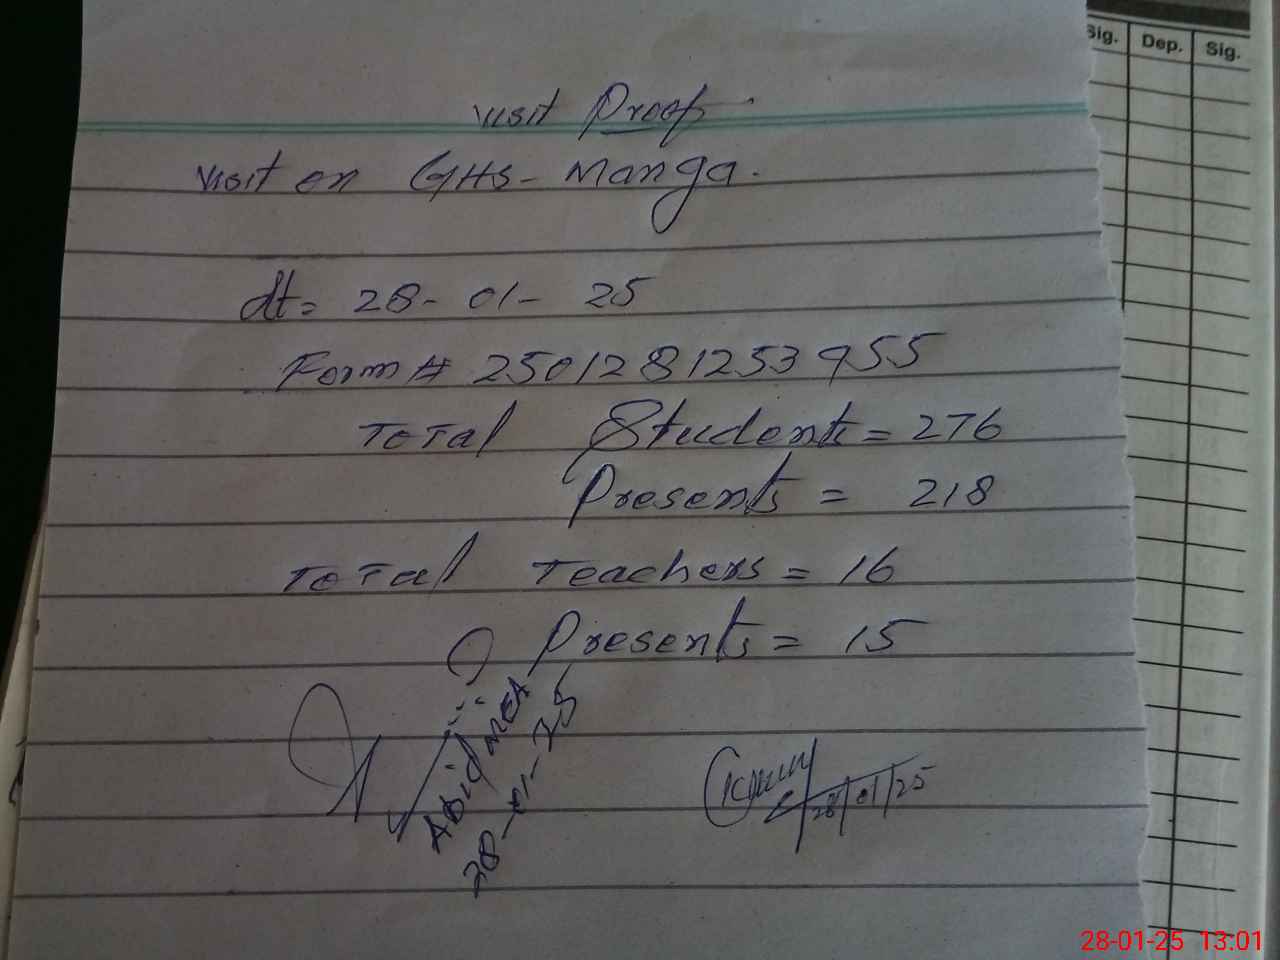 Sig. Dep. Sig.
Visit Proof
Visit on GHS- Manga.
dt= 28- 01- 25
Form # 2501281253955
Total Students = 276
Presents = 218
Total Teachers = 16
Presents = 15
Abid MEA
28-01-25
28/01/25
28-01-25 13:01